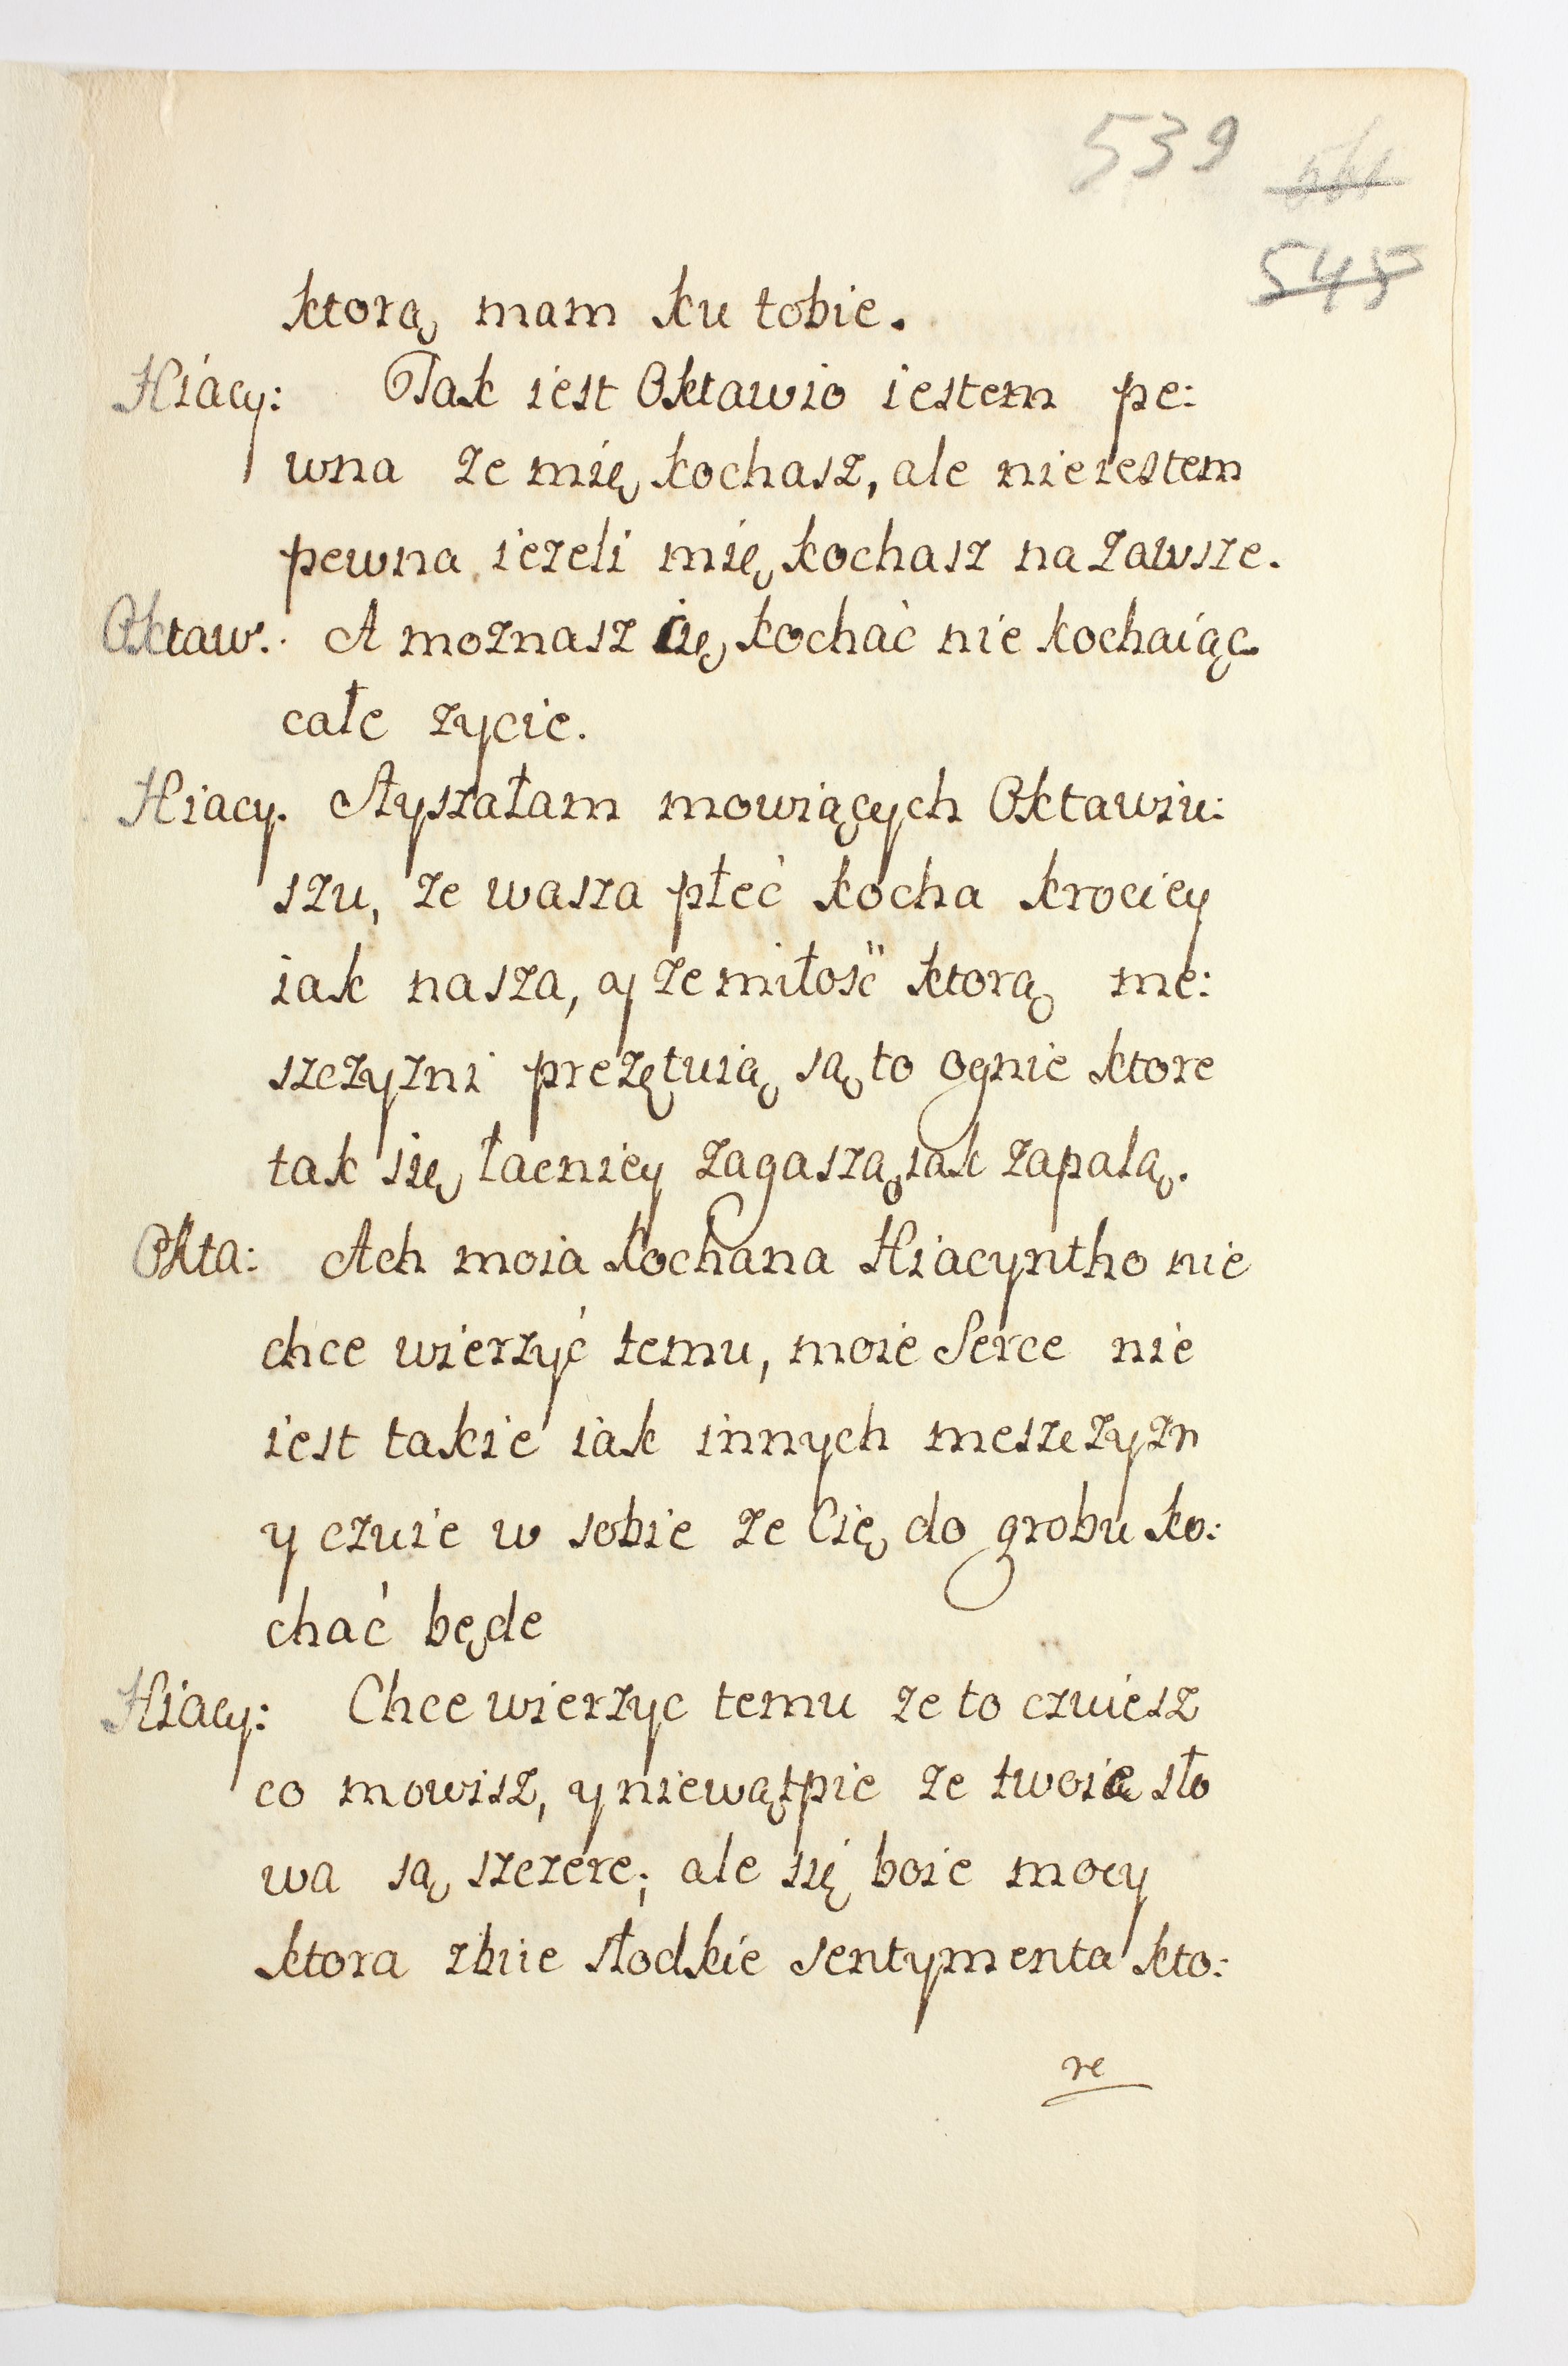 539
545
ktorą mam ku tobie.
Hiacy: Tak iest Oktawio iestem pe:
wna ze mię kochasz, ale nieiestem
pewna iezeli mię kochasz na zawsze.
Oktaw: A moznasz cię kochać nie kochaiąc
całe zycie.
Hiacy. Słyszałam mowiących Oktawiu:
szu, ze wasza płeć kocha krociey
iak nasza, y ze miłość ktorą me:
szczyzni prezętuią są to ognie ktore
tak się łacniey zagaszą iak zapalą.
Okta: Ach moia kochana Hiacyntho nie
chce wierzyć temu, moie Serce nie
iest takie iak innych meszczyzn
y czuie w sobie ze Cię do grobu ko:
chać będe
Hiacy: Chce wierzyc temu ze to czuiesz
co mowisz, y niewątpie ze twoie sło
wa są szczere; ale się boie mocy
ktora zbiie słodkie sentymenta kto:
re